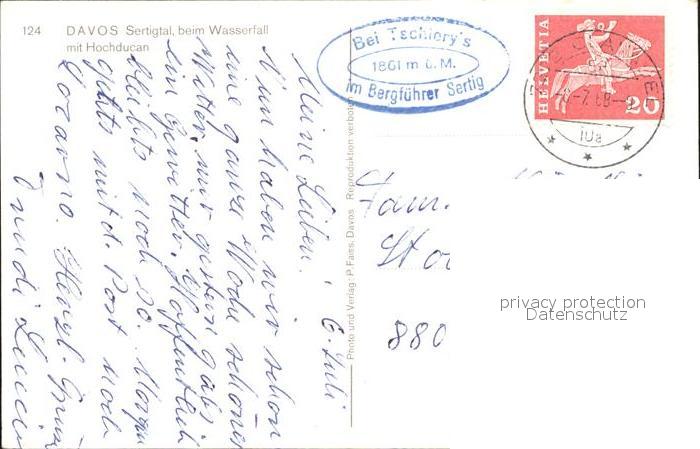 124 DAVOS Sertigtal, beim Wasserfall
mit Hochducan
Bei Tschiery's
1861 m ü. M.
im Bergführer Sertig
HELVETIA
20
10a
Photo und Verlag: P. Faiss, Davos Reproduktion verboten
6. Juli
Meine Lieben!
Nun haben wir schon
eine ganze Woche schönes
Wetter, nur gestern gabs
ein Gewitter. Hoffentlich
bleibts noch so. Morgen
gehts mit d. Post nach
Locarno. Herzl. Grüsse
Trudi
Fam.
880
privacy protection
Datenschutz